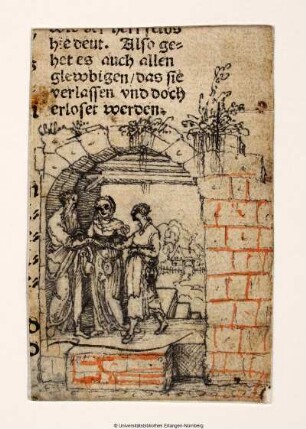 wie der herr selbs
hie deut. Also ge-
het es auch allen
glewbigen/das sie
verlassen vnd doch
erloset werden.
© Universitätsbibliothek Erlangen-Nürnberg